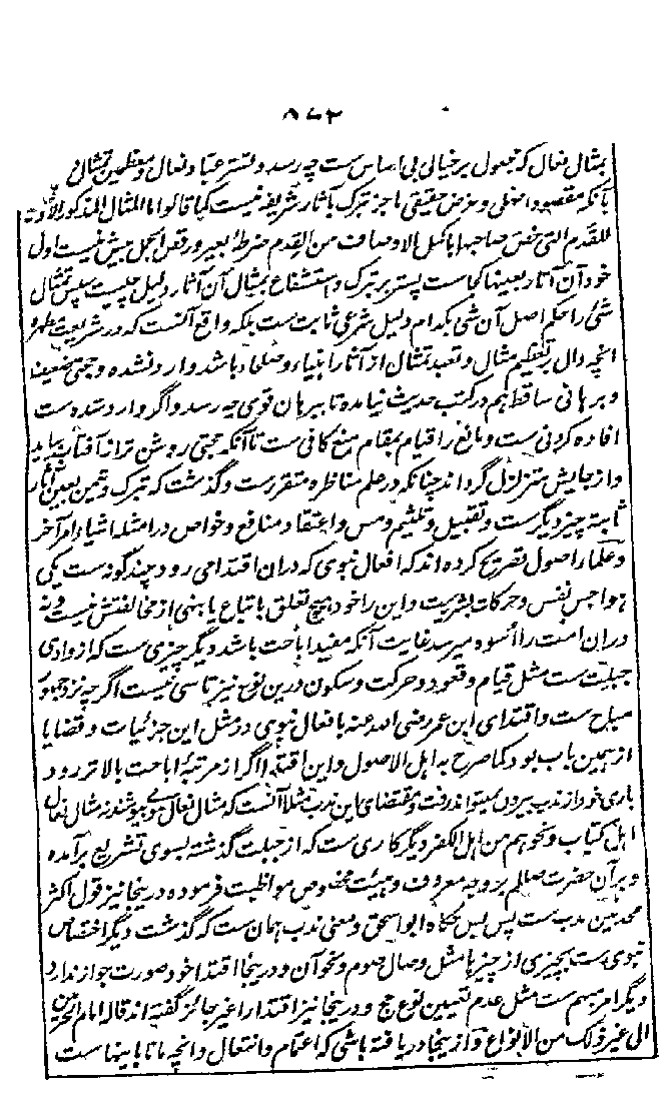 ۵۷۲
بمثال نعال که مجعول بر خیالی بی اساس ست چه رسد و تستر عبا و نعال و معظمین تمثال
بآنکه مقصود اصلی و غرض حقیقی ما جز تبرک بآثار شریفه نیست کما قالوا ما المثال المذکور
للقدم التی نفس صاحبها باکمل الاوصاف من القدم پیش نیست اول
خود آن آثار بعینها کجاست پستر بر تبرک و استشفاع بمثال آن آثار دلیل چیست سپس تمثال
شئ را حکم اصل آن شی بکدام دلیل شرعی ثابت ست بلکه واقع آنست که در شریعت مطهره
انچه دال بر تعظیم مثال و تعبد تمثال از آثار انبیا و صلحا باشد وارد نشده و حجتی ضعیف
و برهانی ساقط هم در کتب حدیث نیامده تا ببرهان قوی چه رسد و اگر وارد شده ست
افاده کردنی ست و مانع را قیام بمقام منع کافی ست تا آنکه حجتی روشن تر از آفتاب بیاید
و از جایش متزلزل گرداند چنانکه در علم مناظره متقررست و گذشت که تبرک و تیمن بعین آثار
ثابته چیز دیگرست و تقبیل و تلثیم و مس و اعتقاد منافع و خواص در امثله اشیا امر آخر
و علماء اصول تصریح کرده اند که افعال نبوی که دران اقتدا می رود چند گونه ست یکی
هواجس نفس و حرکات بشریت و این را خود هیچ تعلق باتباع یا بنهی از مخالفتش نیست و نه
دران امت را اسوه میرسد غایت آنکه مفید اباحت باشد دیگر چیزی ست که از وادی
جبلت ست مثل قیام و قعود و حرکت و سکون درین نوع نیز تاسی نیست اگرچه نزد جمهور
مباح ست و اقتدای ابن عمر رضی الله عنه بافعال نبوی در مثل این جزئیات و قضایا
از همین باب بود کما صرح به اهل الاصول و این اقتدا اگر از مرتبهٔ اباحت بالاتر رود
باری خود از ندب بیرون نمیتواند رفت و مقتضای این ندب مثلا آنست که مثال نعال نبوی بپوشند نه مثال نعال
اهل کتاب و نحوهم من اهل الکفر دیگر کاری ست که از جبلت گذشته بسوی تشریع برآمده
و بر آن حضرت صلعم بر وجه معروف و هیئت مخصوص مواظبت فرموده درینجا نیز قول اکثر
محدثین ندب ست پس حکاه ابو اسحق و معنی ندب همان ست که گذشت دیگر اختصاص
نبوی ست بچیزی از چیزها مثل وصال صوم و نحو آن و درینجا اقتدا خود صورت جواز ندارد
دیگر امر مبهم ست مثل عدم تعیین نوع حج و درینجا نیز اقتدا را غیر جائز گفته اند قاله امام الحرمین
الی غیر ذلک من الانواع و ازینجا دریافته باشی که اعتمام و انتعال و انچه ماننا باینهاست